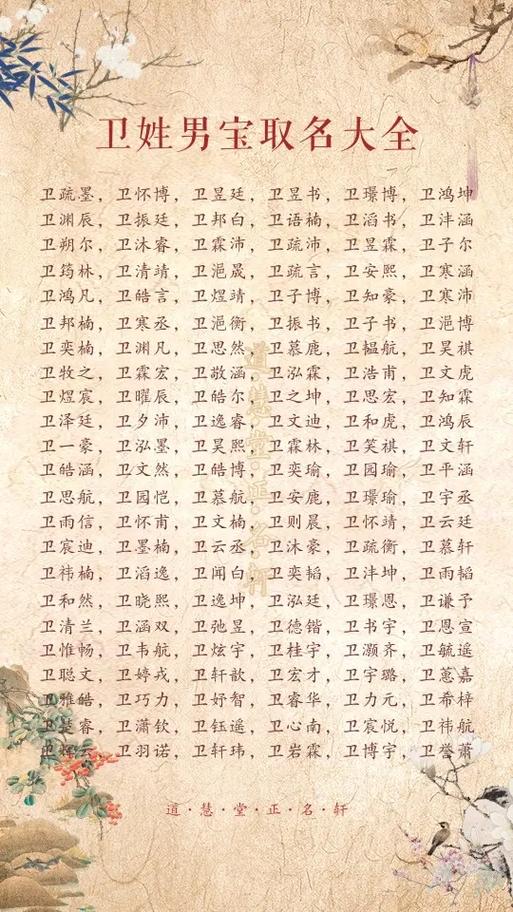 卫姓男宝取名大全
卫疏墨，卫怀博，卫昱廷，卫昱书，卫璟博，卫鸿坤
卫渊辰，卫振廷，卫邦白，卫语楠，卫滔书，卫沣涵
卫朔尔，卫沐睿，卫霖沛，卫疏沛，卫昱霖，卫子尔
卫筠林，卫清靖，卫浥晟，卫疏言，卫安熙，卫寒涵
卫鸿凡，卫皓言，卫煜靖，卫子博，卫知豪，卫寒沛
卫邦楠，卫寒丞，卫浥衡，卫振书，卫子书，卫浥博
卫奕楠，卫渊凡，卫思然，卫慕鹿，卫韫航，卫昊祺
卫牧之，卫霖宏，卫敬涵，卫泓霖，卫浩甫，卫文虎
卫煜宸，卫曜辰，卫皓尔，卫之坤，卫思宏，卫知霖
卫泽廷，卫夕沛，卫逸睿，卫文迪，卫和虎，卫鸿辰
卫一豪，卫泓墨，卫昊熙，卫霖林，卫笑祺，卫文轩
卫皓涵，卫文然，卫皓博，卫奕瑜，卫园瑜，卫平涵
卫思航，卫园恺，卫慕航，卫安鹿，卫璟瑜，卫宇丞
卫雨信，卫怀甫，卫文楠，卫则晨，卫怀靖，卫云廷
卫宸迪，卫墨楠，卫云丞，卫沐豪，卫疏衡，卫慕轩
卫祎楠，卫滔逸，卫闻白，卫奕韬，卫沣坤，卫雨韬
卫和然，卫晓熙，卫逸坤，卫泓廷，卫璟恩，卫谦予
卫清兰，卫涵双，卫弛昱，卫德锴，卫书宇，卫恩宣
卫惟畅，卫韦航，卫炫宇，卫桂宇，卫灏齐，卫毓遥
卫聪文，卫婷戎，卫轩歆，卫宏才，卫宇璐，卫蕙嘉
卫雅皓，卫巧力，卫妤智，卫睿华，卫力元，卫希梓
卫楚睿，卫潇钦，卫钰遥，卫心南，卫宸悦，卫祎航
卫辉云，卫羽诺，卫轩玮，卫岩霖，卫博宇，卫誉萧
道·慧·堂·正·名·轩
道·慧·堂·正·名·轩